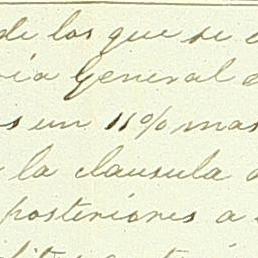 de los que se
ria General
s un 11% mas
la clausula
posteriores a